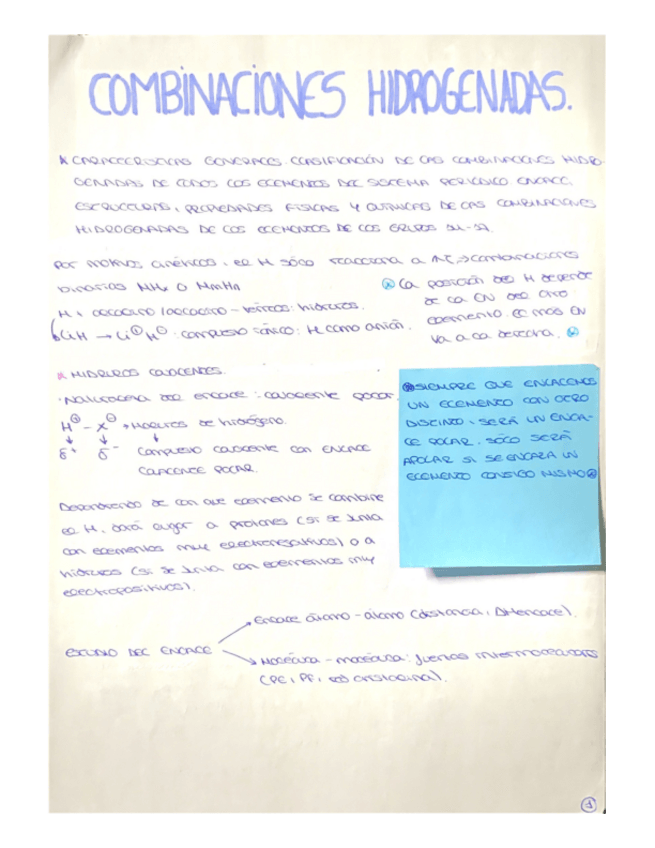 COMBINACIONES HIDROGENADAS.
* CARACTERÍSTICAS GENERALES. CLASIFICACIÓN DE LAS COMBINACIONES HIDRO-
GENADAS DE TODOS LOS ELEMENTOS DEL SISTEMA PERIÓDICO. ENLACE,
ESTRUCTURAS, PROPIEDADES FÍSICAS Y QUÍMICAS DE LAS COMBINACIONES
HIDROGENADAS DE LOS ELEMENTOS DE LOS GRUPOS 14-17.
Por motivos cinéticos, el H sólo reacciona a ↑T → combinaciones
binarias MHx o MmHn
La posición del H depende
de la EN del otro
elemento. El más EN
va a la derecha.
H + alcalino/alcalino-térreos: hidruros.
LiH → Li⊕H⊖: compuesto iónico: H como anión.
* HIDRUROS COVALENTES.
· Naturaleza del enlace: covalente polar.
H⊕ - X⊖ → Haluros de hidrógeno.
δ+ δ- Compuesto covalente con ENLACE
COVALENTE POLAR.
SIEMPRE QUE ENLACEMOS
UN ELEMENTO CON OTRO
DISTINTO, SERÁ UN ENLA-
CE POLAR. SÓLO SERÁ
APOLAR SI SE ENLAZA UN
ELEMENTO CONSIGO MISMO
Dependiendo de con que elemento se combine
el H, dará lugar a protones (si se junta
con elementos muy electronegativos) o a
hidruros (si se junta con elementos muy
electropositivos).
ESTUDIO DEL ENLACE
Enlace átomo - átomo (distancia, ΔHenlace).
Molécula - molécula: fuerzas intermoleculares
(PE, PF, red cristalina).
1